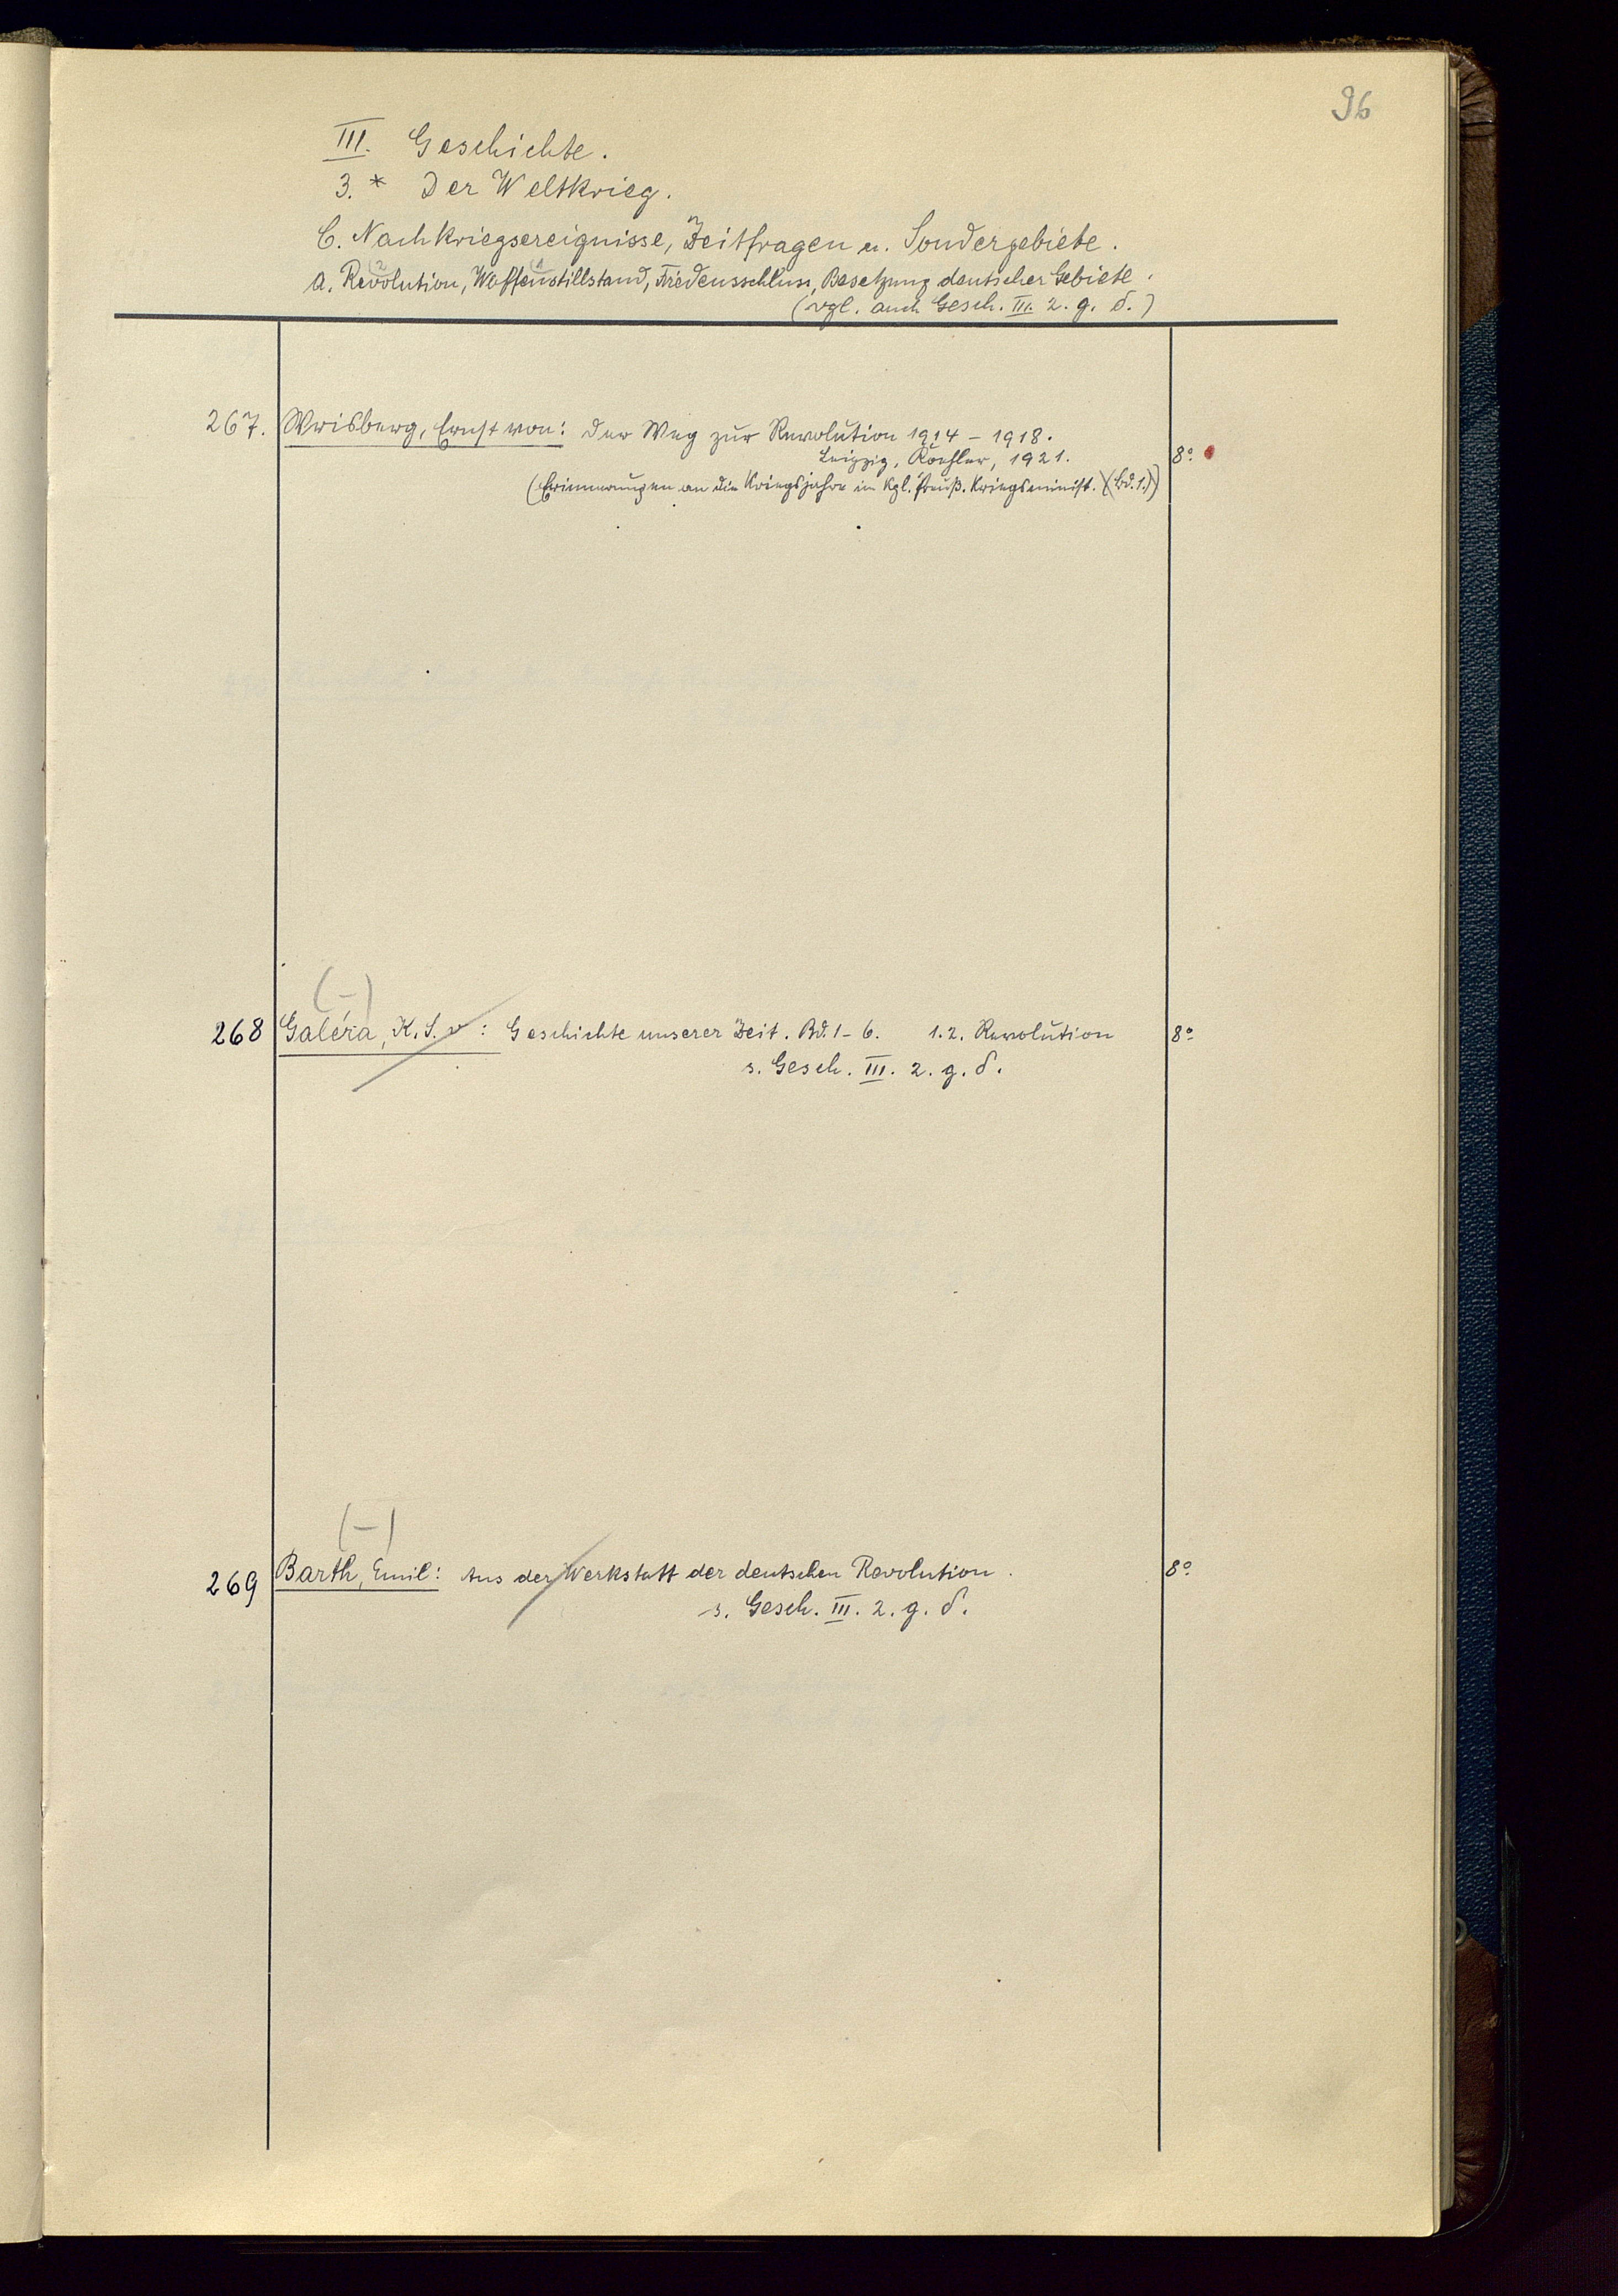 96
III. Geschichte.
3. * Der Weltkrieg.
C. Nachkriegsereignisse, Zeitfragen u. Sondergebiete.
a. Revolution, Waffenstillstand, Friedensschluss, Besetzung deutscher Gebiete.
(vgl. auch Gesch. III. 2. g. δ.)
267. Wrisberg, Ernst von: Der Weg zur Revolution 1914 – 1918.
Leipzig, Koehler, 1921. 8°
(Erinnerungen an die Kriegsjahre im Kgl. Preuß. Kriegsminist. (Bd. 1.))
(–)
268 Galéra, K. S. v: Geschichte unserer Zeit. Bd. 1–6. 1.2. Revolution 8°
s. Gesch. III. 2. g. δ.
(–)
269 Barth, Emil: Aus der Werkstatt der deutschen Revolution. 8°
s. Gesch. III. 2. g. δ.